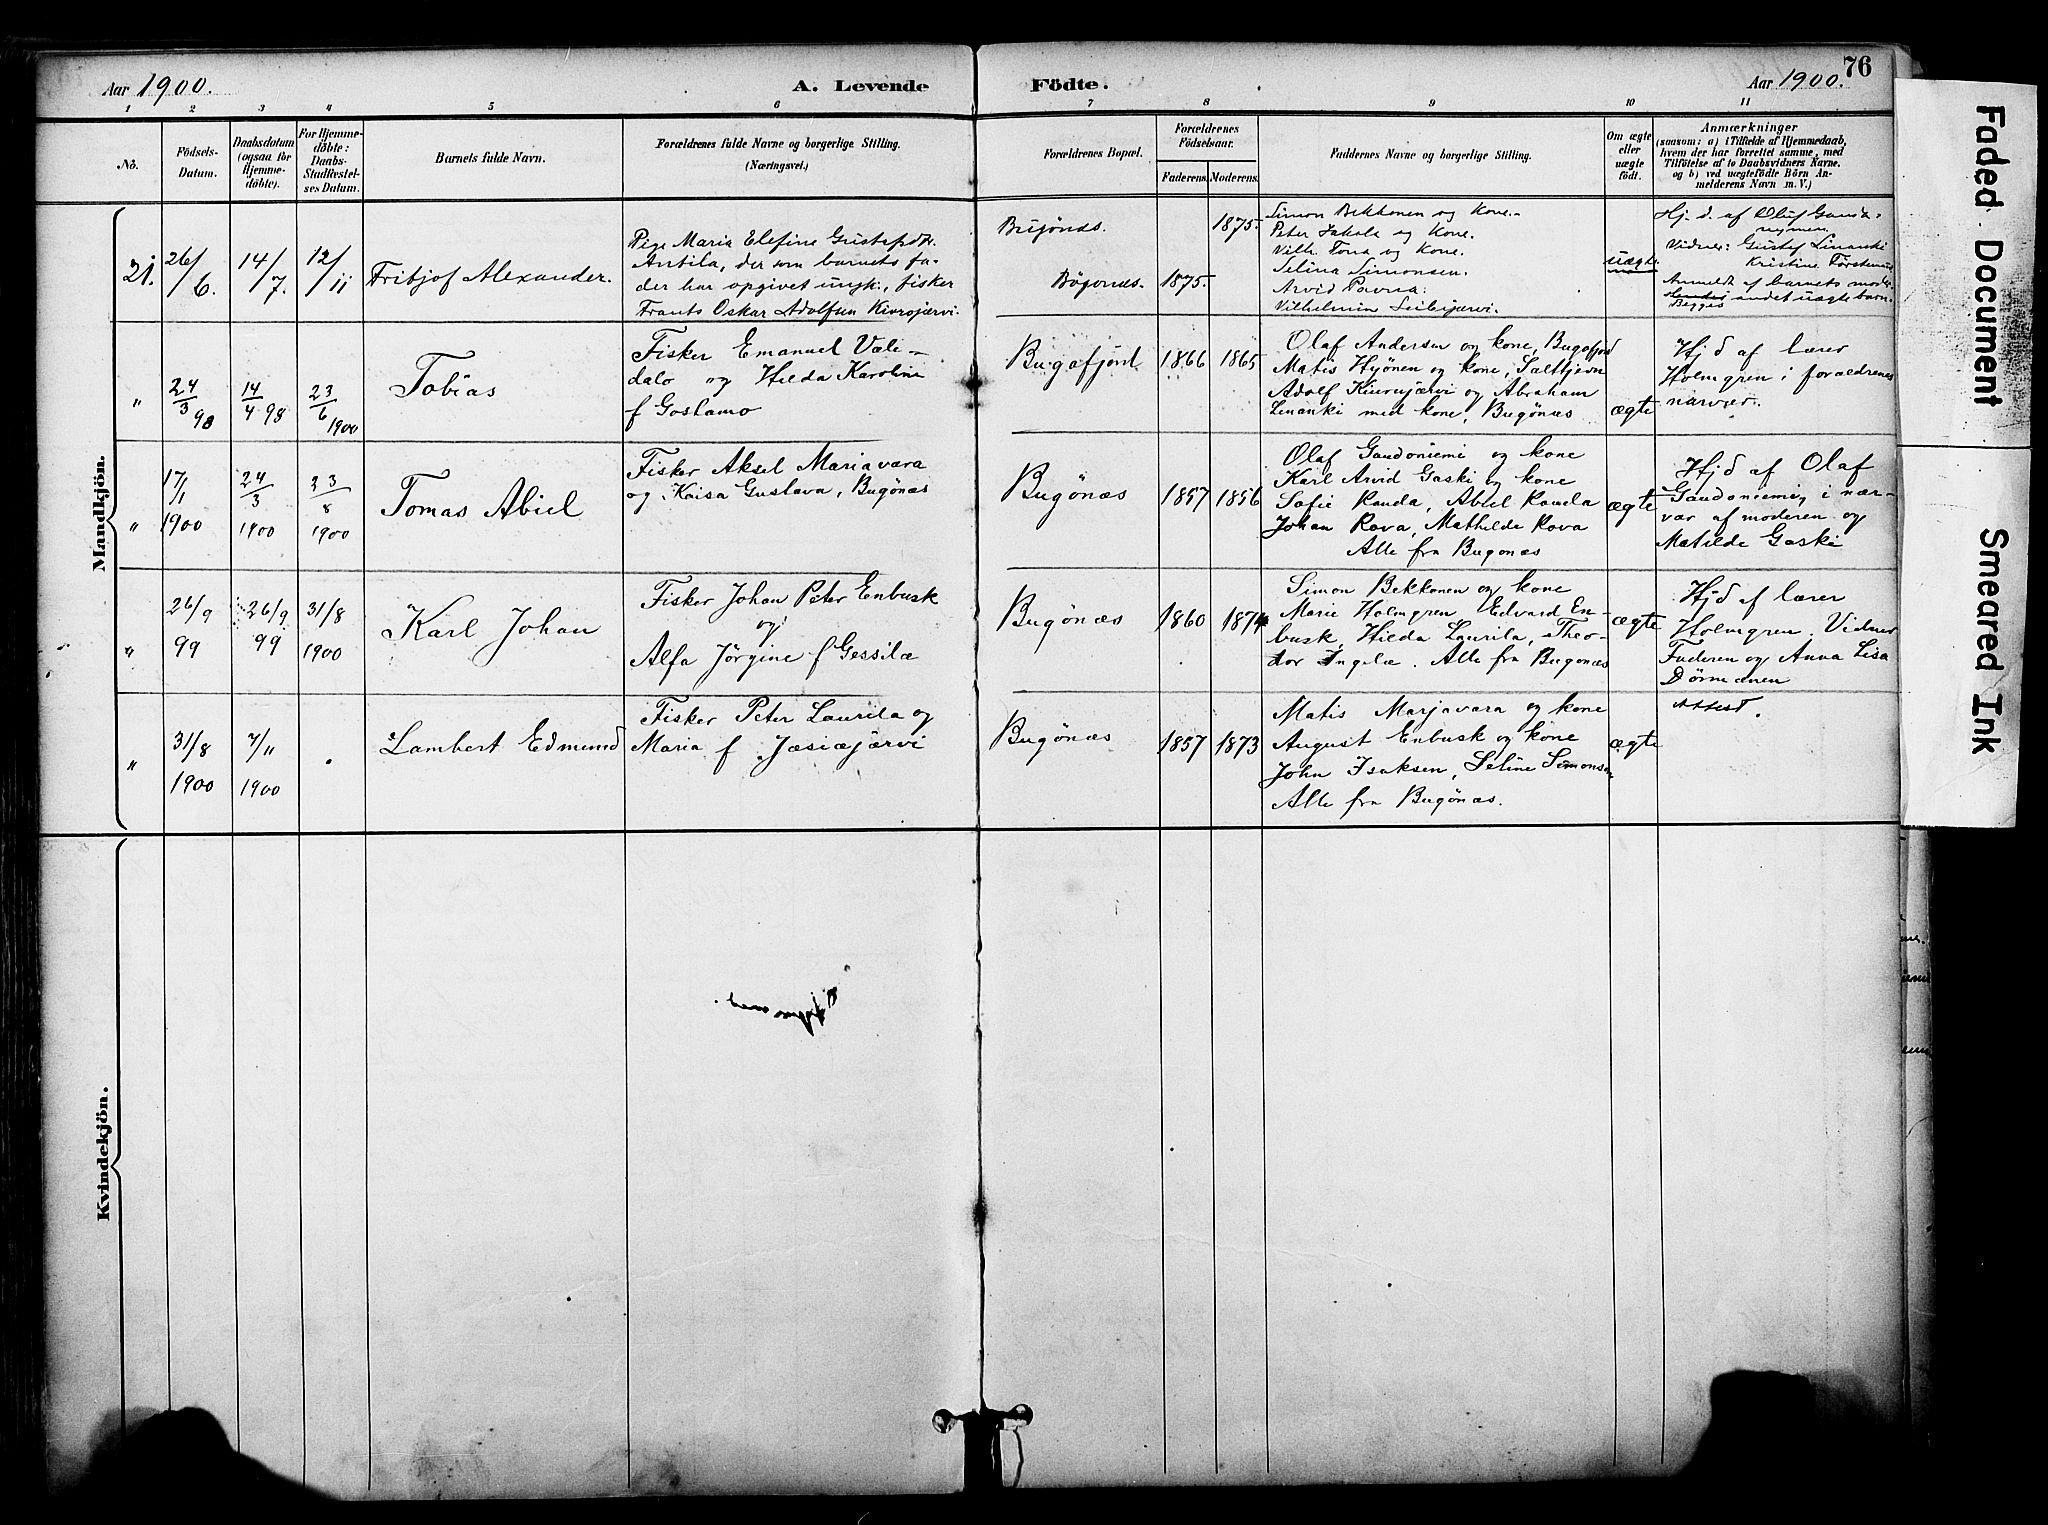 76
Aar 1900.
A. Levende Födte.
Aar 1900.
1 2 3 4 5 6 7 8 9 10 11
No.
Födsels-
Datum.
Daabsdatum
(ogsaa for
Hjemme-
döbte).
For Hjemme-
döbte:
Daabs-
Stadfæstel-
ses Datum.
Barnets fulde Navn.
Forældrenes fulde Navne og borgerlige Stilling.
(Næringsvei.)
Forældrenes Bopæl.
Forældrenes
Födselsaar.
Faderens. Moderens.
Faddernes Navne og borgerlige Stilling.
Om ægte
eller
uægte
födt.
Anmærkninger
(saasom: a) i Tilfælde af Hjemmedaab,
hvem der har forrettet samme, med
Tilföielse af to Daabsvidners Navne.
og b) ved uægtefödte Börn An-
melderens Navn m. V.)
Mandkjön.
21.
26/6.
14/7.
12/11
Fritjof Alexander.
Pige Maria Elefine Gustafsdtr.
Antila, der som barnets fa-
der har opgivet ungk., fisker
Frants Oskar Adolfsen Kivrojærvi.
Bugönæs.
Bögönæs.
1875.
1875.
Simon Bekkonen og Kone.
Peter Jakola og Kone.
Vilh. og Kone.
Selina Simonsen.
Arvid
Vilhelmin
uægte
Hj. d. af Oluf
Vidner: Gustef Linanki
Kristine
Anmeldt af barnets moder.
Begges andet uægte barn.
"
24/3 98
14/4 98
23/6 1900
Tobias
Fisker Emanuel Væli-
dalo og Hilda Karoline
f Goslamo
Bugøfjord
1866 1865
Olaf Andersen og kone, Bugøfjord
Matis Hyönen og kone,
Adolf Kiurujærvi og Abraham
Linanki med kone, Bugönæs
ægte
Hjd af lærer
Holmgren i forældrenes
nærvær.
"
17/1 1900
24/3 1900
23/8 1900
Tomas Abiel
Fisker Aksel Mariavara
og Kaisa Gustava, Bugönæs
Bugönæs
1857 1856
Olaf Gaudoniemi og kone
Karl Arvid Gaski og kone
Sofie Randa, Abiel Randa
Johan Rova, Mathilde Rova
Alle fra Bugonæs
ægte
Hjd af Olaf
Gaudoniemi, i nær-
vær af moderen og
Matilde Gaski
"
26/9 99
26/9 99
31/8 1900
Karl Johan
Fisker Johan Peter Enbusk
og
Alfa Jörgine f Gessilæ
Bugönæs
1860 1874
Simon Bekkonen og kone
Marie Holmgren Edvard En-
busk, Hilda Laurila, Theo-
dor Ingelæ. Alle fra Bugonæs
ægte
Hjd af lærer
Holmgren. Vidner
Faderen og Anna Lisa
Dörmænen
"
31/8 1900
7/11 1900
Lambert Edmund
Fisker Peter Laurila og
Maria f Jæsiæjärvi
Bugönæs
1857 1873
Matis Marjavara og kone
August Enbusk og kone
John Isaksen, Seline Simonsen
Alle fra Bugönæs.
ægte
Attest.
Kvindekjön.
Faded Document
Smeared Ink